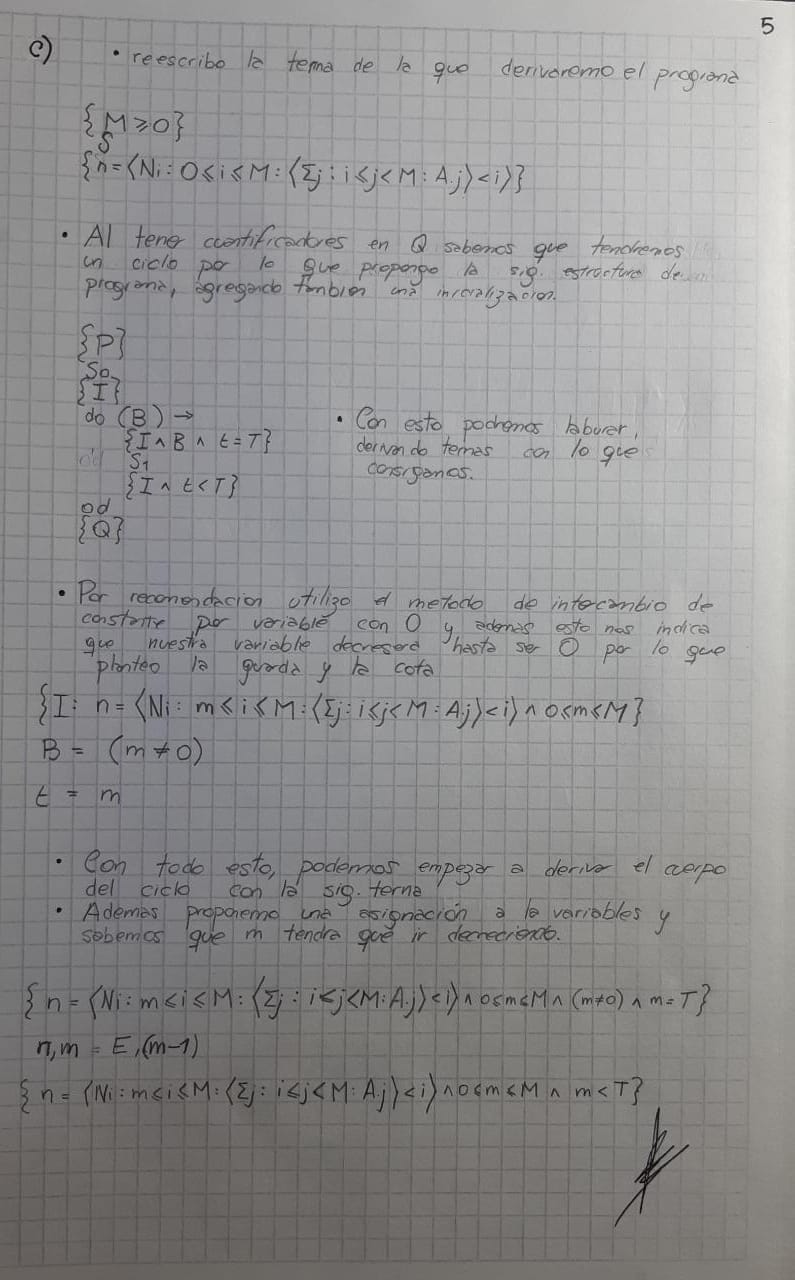 5
c) • reescribo la terna de la que derivaremo el programa
{M ≥ 0}
S
{n = ⟨Ni : 0 ≤ i ≤ M : ⟨Σj : i ≤ j < M : A.j⟩ < i⟩}
• Al tener cuantificadores en Q sabemos que tendremos
un ciclo por lo que propongo la sig. estructura de
programa, agregando tambien una inicializacion.
{P}
So
{I}
do (B) →
{I ∧ B ∧ t = T}
S1
{I ∧ t < T}
od
{Q}
• Con esto podremos laburar,
derivando ternas con lo que
consigamos.
• Por recomendacion utilizo el metodo de intercambio de
constante por variable con 0 y ademas esto nos indica
que nuestra variable decrecera hasta ser 0 por lo que
planteo la guarda y la cota
{I: n = ⟨Ni : m ≤ i ≤ M : ⟨Σj : i ≤ j < M : A.j⟩ < i⟩ ∧ 0 ≤ m ≤ M}
B = (m ≠ 0)
t = m
• Con todo esto, podemos empezar a derivar el cuerpo
del ciclo con la sig. terna
• Ademas proponemo una asignación a la variables y
sabemos que m tendra que ir decreciendo.
{n = ⟨Ni : m ≤ i ≤ M : ⟨Σj : i ≤ j < M : A.j⟩ < i⟩ ∧ 0 ≤ m ≤ M ∧ (m ≠ 0) ∧ m = T}
n, m = E, (m-1)
{n = ⟨Ni : m ≤ i ≤ M : ⟨Σj : i ≤ j < M : A.j⟩ < i⟩ ∧ 0 ≤ m ≤ M ∧ m < T}